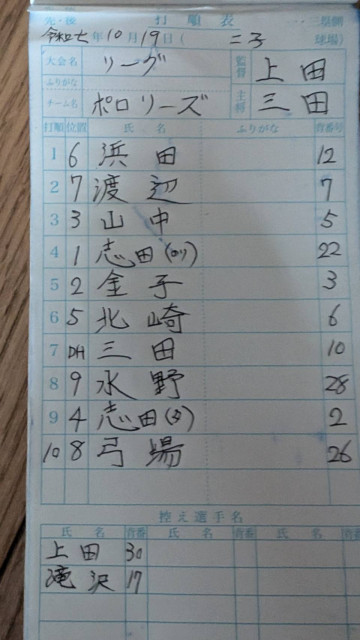 先・後 打順表 三塁側
令和七年10月19日( 二子 球場)
大会名 リーグ 監督 上田
ふりがな
チーム名 ポロリーズ 主将 三田
打順 位置 氏名 ふりがな 背番号
1 6 浜田 12
2 7 渡辺 7
3 3 山中 5
4 1 志田 22
5 2 金子 3
6 5 北崎 6
7 DH 三田 10
8 9 水野 28
9 4 志田(タ) 2
10 8 弓場 26
控え選手名
氏名 背番 氏名 背番 氏名
上田 30
滝沢 17